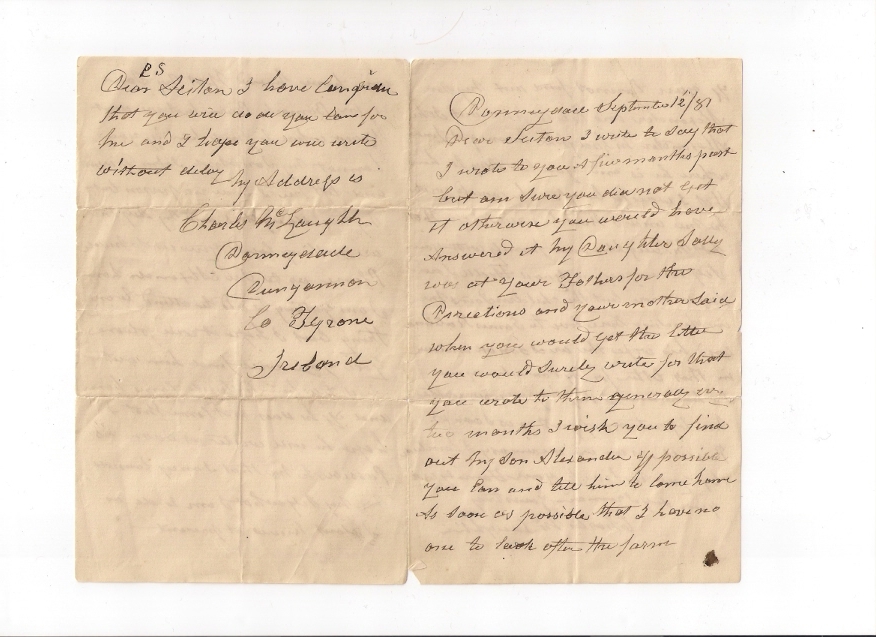 PS
Dear Seiton I have
that you will do all you can for
me and I hope you will write
without delay My Address is
Charles McLaughlin
Dungannon
Co Tyrone
Ireland
September 12/81
Dear Seiton I write to say that
I wrote to you A few months past
but am sure you did not get
it otherwise you would have
Answered it My Daughter Sally
was at your Fathers for the
Directions and your mother said
when you would get the letter
you would surely write for that
you wrote to them generally
two months I wish you to find
out my son Alexander if possible
you can and tell him to come home
As soon as possible that I have no
one to look after the farm